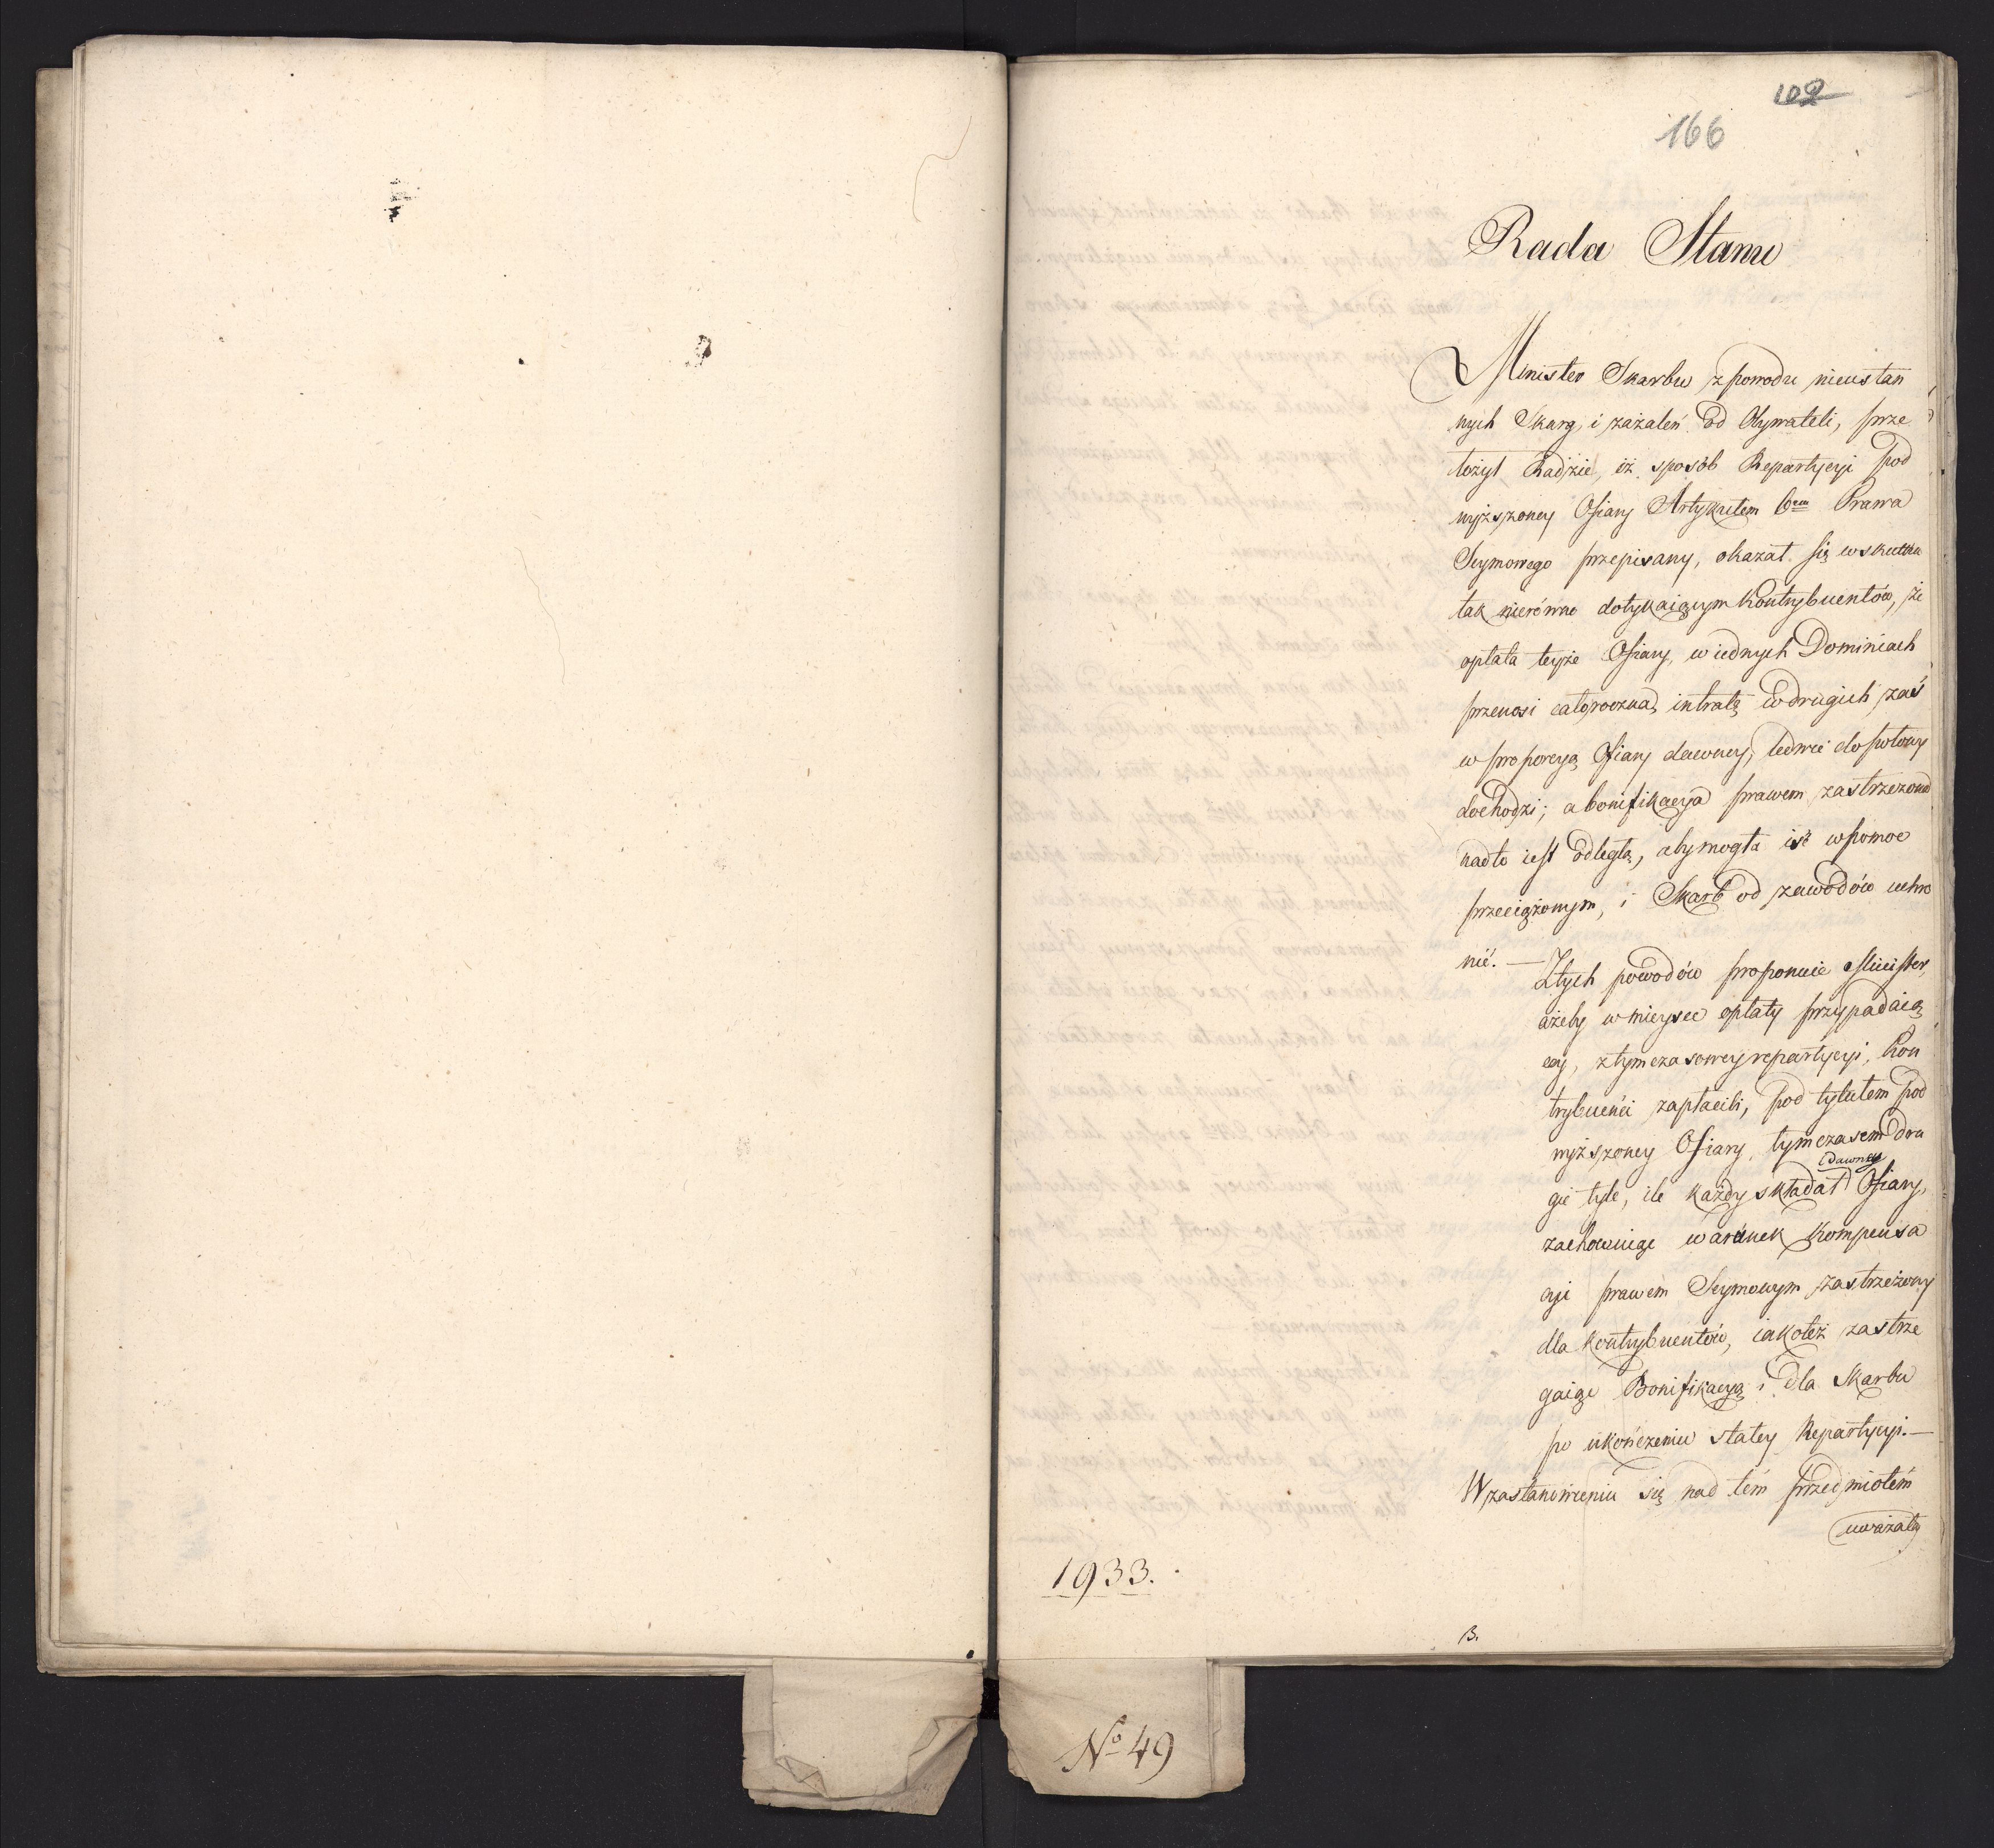 102
166
Rada Stanu
Minister Skarbu z powodu nieustan
nych Skarg, i zażaleń od Obywateli, prze
łożył Radzie, iż sposób Repartycyi pod
wyższoney Ofiary Artykułem 6em Prawa
Seymowego przepisany, okazał się w skutku
tak nierówno dotykaiącym Kontrybuentów, że
opłata teyże Ofiary, w iednych Dominiach
przenosi całoroczną intratę w drugich zaś
w proporcyą Ofiary dawney, ledwie do połowy
dochodzi; a bonifikacya prawem zastrzeżona
nadto iest odległą, aby mogła iść w pomoc
przeciążonym, i Skarb od zawodów uchro
nić. — Z tych powodów proponuie Minister,
ażeby w mieysce opłaty przypadaią
cey, z tymczasowey repartycyi, Kon
trybuenci zapłacili, pod tytułem pod
wyższoney Ofiary, tymczasem dru
gie tyle, ile każdy składał dawney Ofiary,
zachowuiąc warunek Kompensa
cyi prawem Seymowym zastrzeżony
dla kontrybuentów, iako też zastrze
gaiąc Bonifikacyą i dla Skarbu
po ukończeniu stałey Repartycyi. —
W zastanowieniu się nad tém przedmiotém
uważała
1933.
B.
No 49